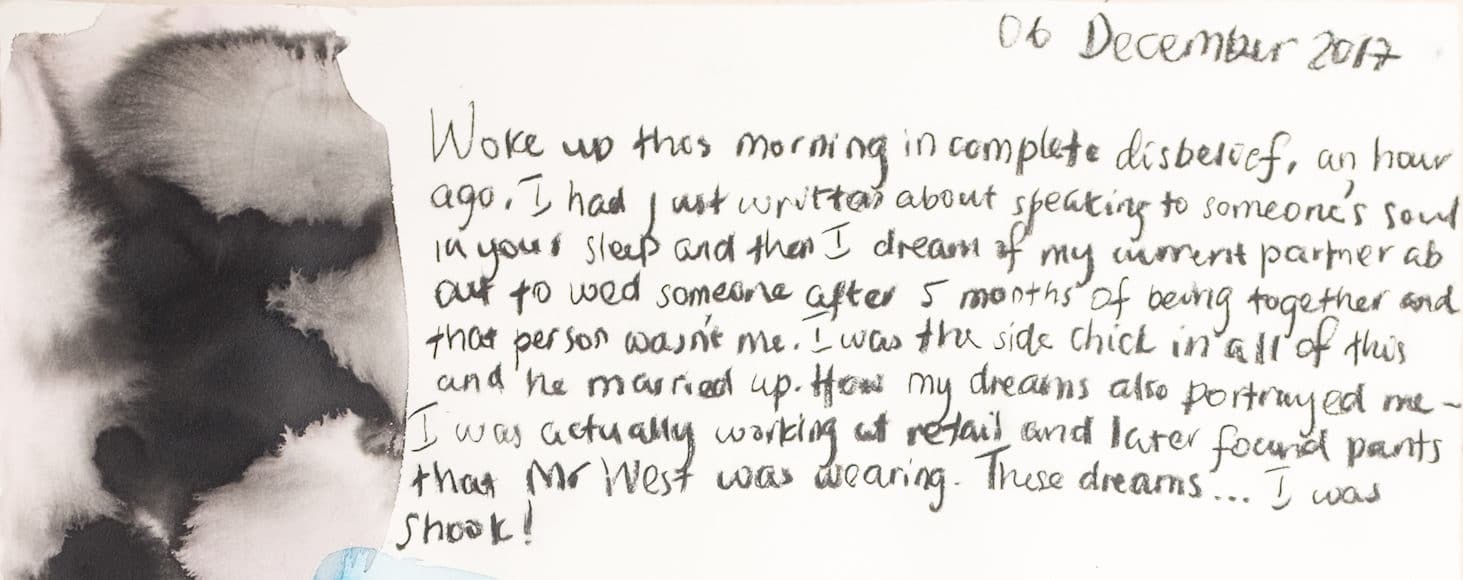 06 December 2017
Woke up this morning in complete disbelief, an hour
ago. I had just written about speaking to someone's soul
in your sleep and then I dream of my current partner ab
out to wed someone after 5 months of being together and
that person wasn't me. I was the side chick in all of this
and he married up. How my dreams also portrayed me -
I was actually working at retail and later found pants
that Mr West was wearing. These dreams... I was
shook!